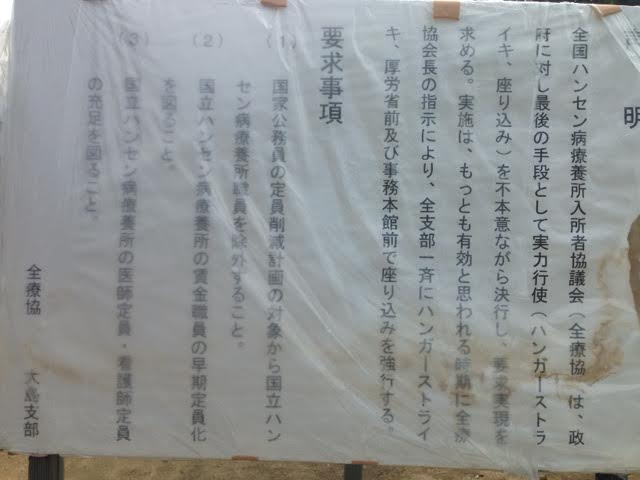 明
全国ハンセン病療養所入所者協議会（全療協）は、政
府に対し最後の手段として実力行使（ハンガーストラ
イキ、座り込み）を不本意ながら決行し、要求実現を
求める。実施は、もっとも有効と思われる時期に全療
協会長の指示により、全支部一斉にハンガーストライ
キ、厚労省前及び事務本館前で座り込みを強行する。
要求事項
（1）国家公務員の定員削減計画の対象から国立ハン
セン病療養所職員を除外すること。
（2）国立ハンセン病療養所の賃金職員の早期定員化
を図ること。
（3）国立ハンセン病療養所の医師定員・看護師定員
の充足を図ること。
全療協 大島支部